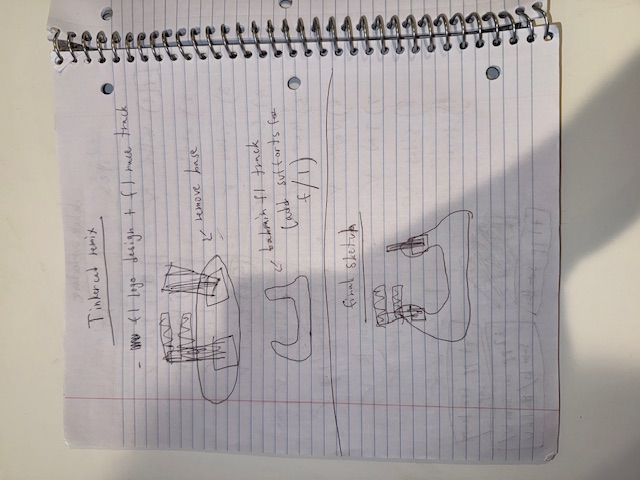 Tinkercad remix
- f1 logo design + f1 race track
remove base
bahrain f1 track
(add supports for
f/1)
final sketch